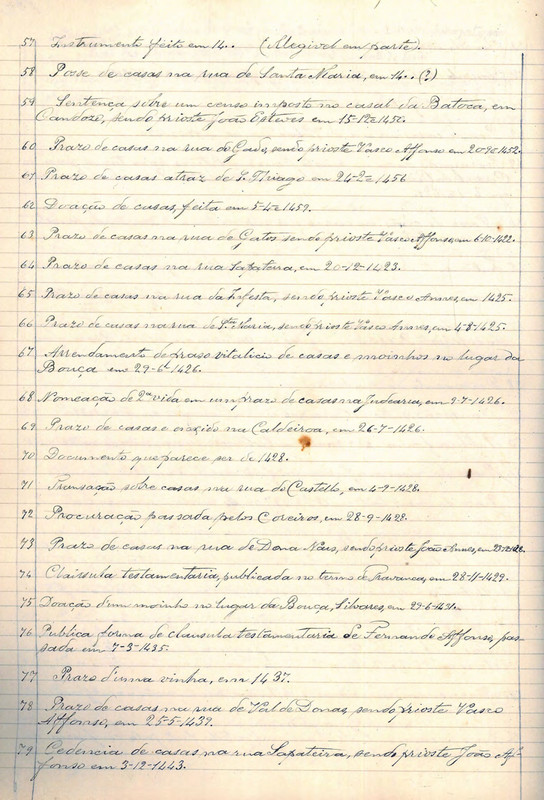 57 Instrumento feito em 14.. (Alegivel em parte).
58 Posse de casas na rua de Santa Maria, em 14.. (?)
59 Sentença sobre um censo imposto no casal da Batoca, em
Candozo, sendo prioste João Esteves em 15-12-1450.
60 Prazo de casas na rua do Gado, sendo prioste Vasco Affonso em 20-9-1452.
61 Prazo de casas atraz de S. Thiago em 24-2-1456
62 Doação de casas, feita em 5-4-1459.
63 Prazo de casas na rua de Gatos sendo prioste Vasco Affonso, em 6-10-1422.
64 Prazo de casas na rua Sapateira, em 20-12-1423.
65 Prazo de casas na rua da Infesta, sendo prioste Vasco Annes, em 1425.
66 Prazo de casas na rua de Sta. Maria, sendo prioste Vasco Annes, em 4-8-1425.
67 Arrendamento de praso vitalicio de casas e moinhos no lugar da
Bouça em 29-6-1426.
68 Nomeação de 2ª vida em um prazo de casas na Judearia, em 9-7-1426.
69 Prazo de casas e enxido na Caldeiroa, em 26-7-1426.
70 Documento que parece ser de 1428.
71 Transação sobre casas na rua do Castello, em 4-9-1428.
72 Procuração passada pelos Coreiros, em 28-9-1428.
73 Prazo de casas na rua de Dona Nais, sendo prioste João Annes, em
74 Claüsula testamentaria, publicada no termo de Travanca, em 28-11-1429.
75 Doação d'um moinho no lugar da Bouça, Silvares, em 29-6-1431.
76 Publica forma de clausula testamentaria de Fernando Affonso, pas-
sada em 7-3-1435.
77 Prazo d'uma vinha, em 1437.
78 Prazo de casas na rua de Val de Donas, sendo prioste Vasco
Affonso, em 25-5-1439.
79 Cedencia de casas na rua Sapateira, sendo prioste João Af-
fonso em 3-12-1443.